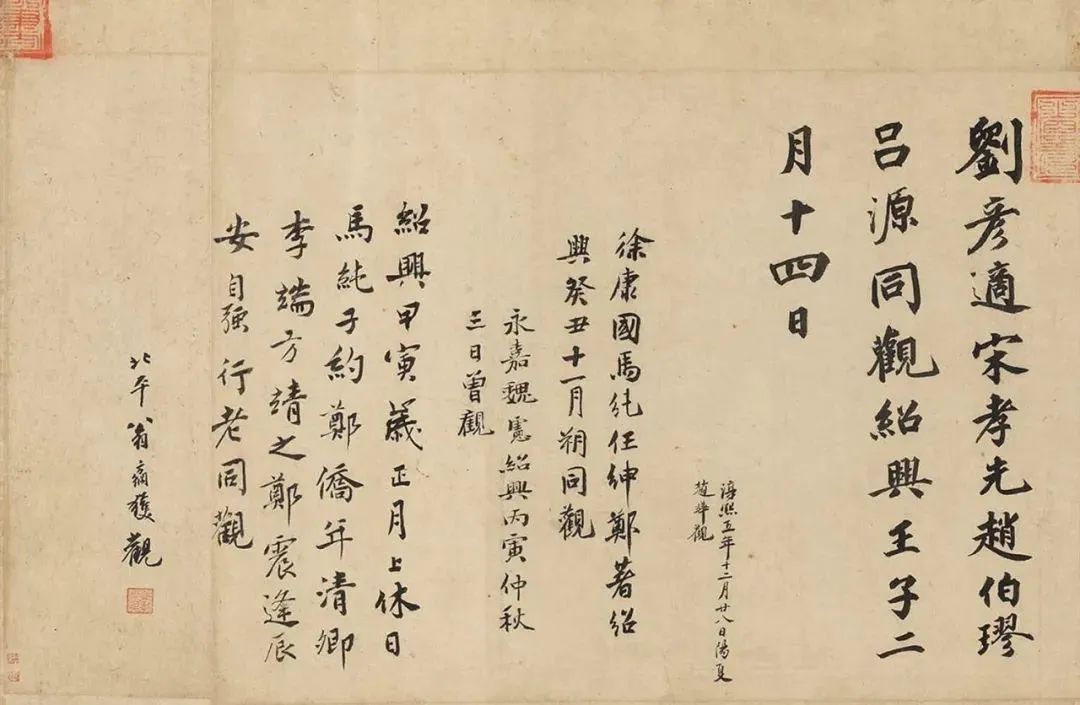 劉彥適宋孝先趙伯璆
呂源同觀紹興壬子二
月十四日
淳熙五年十二月廿八日陽夏
趙觀
徐康國馬純任紳鄭著紹
興癸丑十一月朔同觀
永嘉魏憲紹興丙寅仲秋
三日曾觀
紹興甲寅歲正月上休日
馬純子約鄭僑年清卿
李端方靖之鄭震逢辰
安自强行老同觀
北平翁獲觀